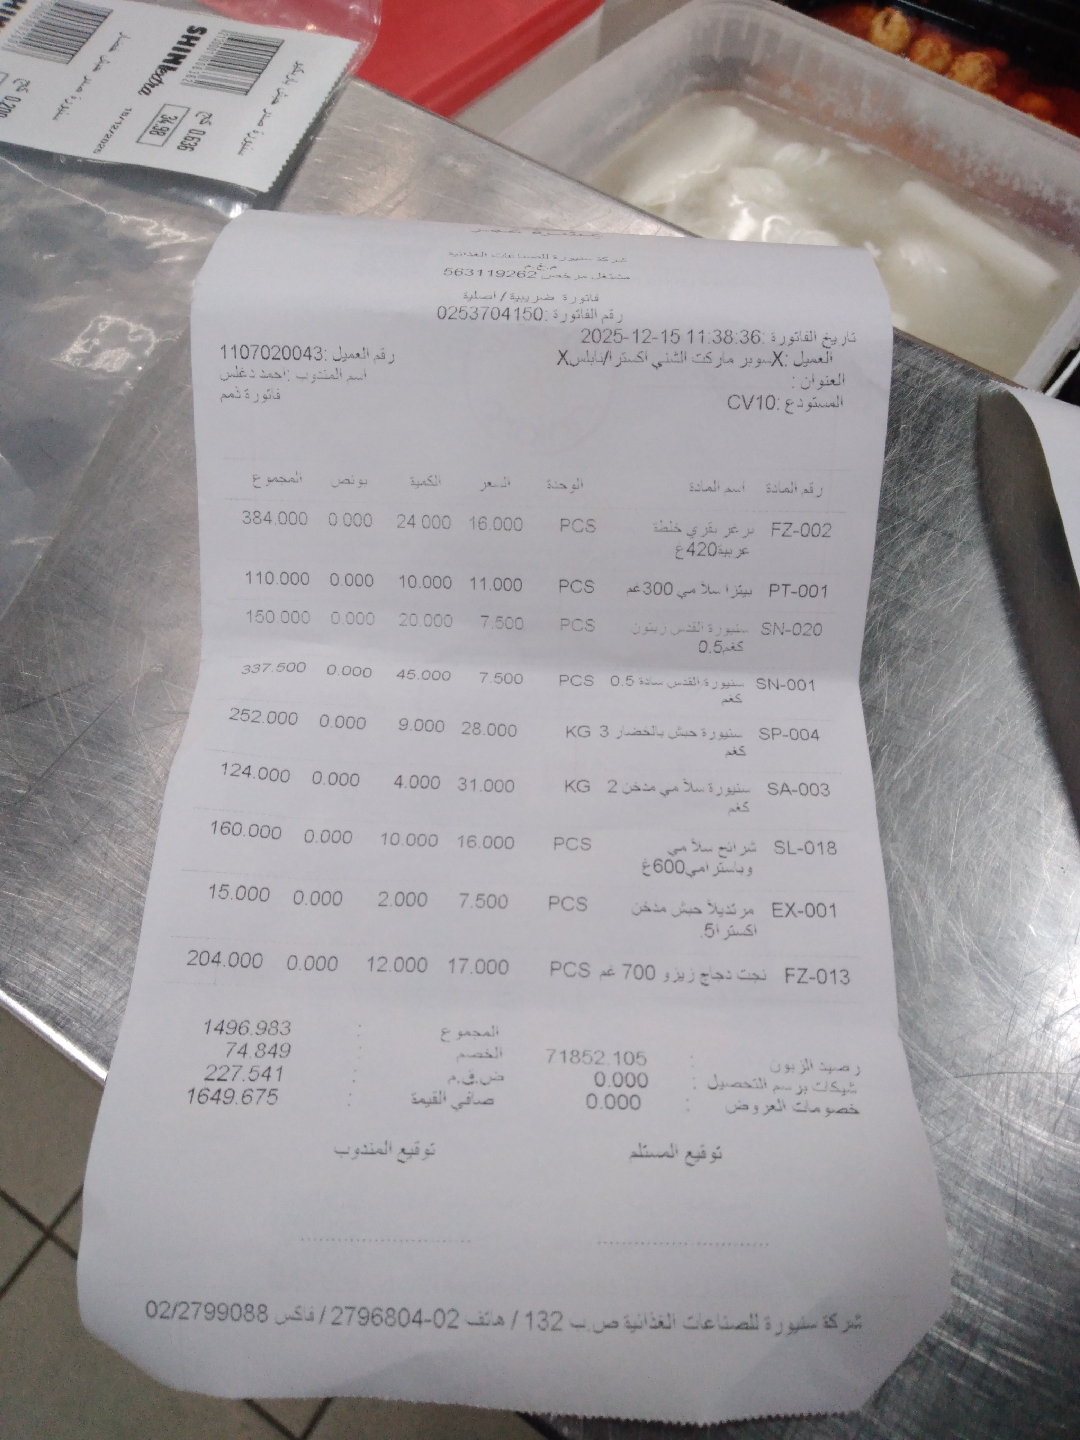 SHINextra
34.98
0.636 كغ
15/12/2025
0.200 كغ
شركة سنيورة للصناعات الغذائية
م.خ.م
مشتغل مرخص 563119262
فاتورة ضريبية / اصلية
رقم الفاتورة :0253704150
تاريخ الفاتورة :2025-12-15 11:38:36
العميل :Xسوبر ماركت الشني اكسترا/نابلسX رقم العميل :1107020043
العنوان : اسم المندوب :احمد دغلس
المستودع :CV10 فاتورة ذمم
رقم المادة اسم المادة الوحدة السعر الكمية بونص المجموع
FZ-002 برغر بقري خلطة PCS 16.000 24.000 0.000 384.000
عربية420غ
PT-001 بيتزا سلامي 300غم PCS 11.000 10.000 0.000 110.000
SN-020 سنيورة القدس زيتون PCS 7.500 20.000 0.000 150.000
0.5كغم
SN-001 سنيورة القدس سادة 0.5 PCS 7.500 45.000 0.000 337.500
كغم
SP-004 سنيورة حبش بالخضار 3 KG 28.000 9.000 0.000 252.000
كغم
SA-003 سنيورة سلامي مدخن 2 KG 31.000 4.000 0.000 124.000
كغم
SL-018 شرائح سلامي PCS 16.000 10.000 0.000 160.000
وباسترامي600غ
EX-001 مرتديلا حبش مدخن PCS 7.500 2.000 0.000 15.000
اكسترا5.
FZ-013 نجت دجاج زيزو 700 غم PCS 17.000 12.000 0.000 204.000
المجموع : 1496.983
رصيد الزبون : 71852.105 الخصم : 74.849
شيكات برسم التحصيل : 0.000 ض.ق.م : 227.541
خصومات العروض : 0.000 صافي القيمة : 1649.675
توقيع المستلم توقيع المندوب
شركة سنيورة للصناعات الغذائية ص.ب 132 / هاتف 02-2796804 / فاكس 02/2799088